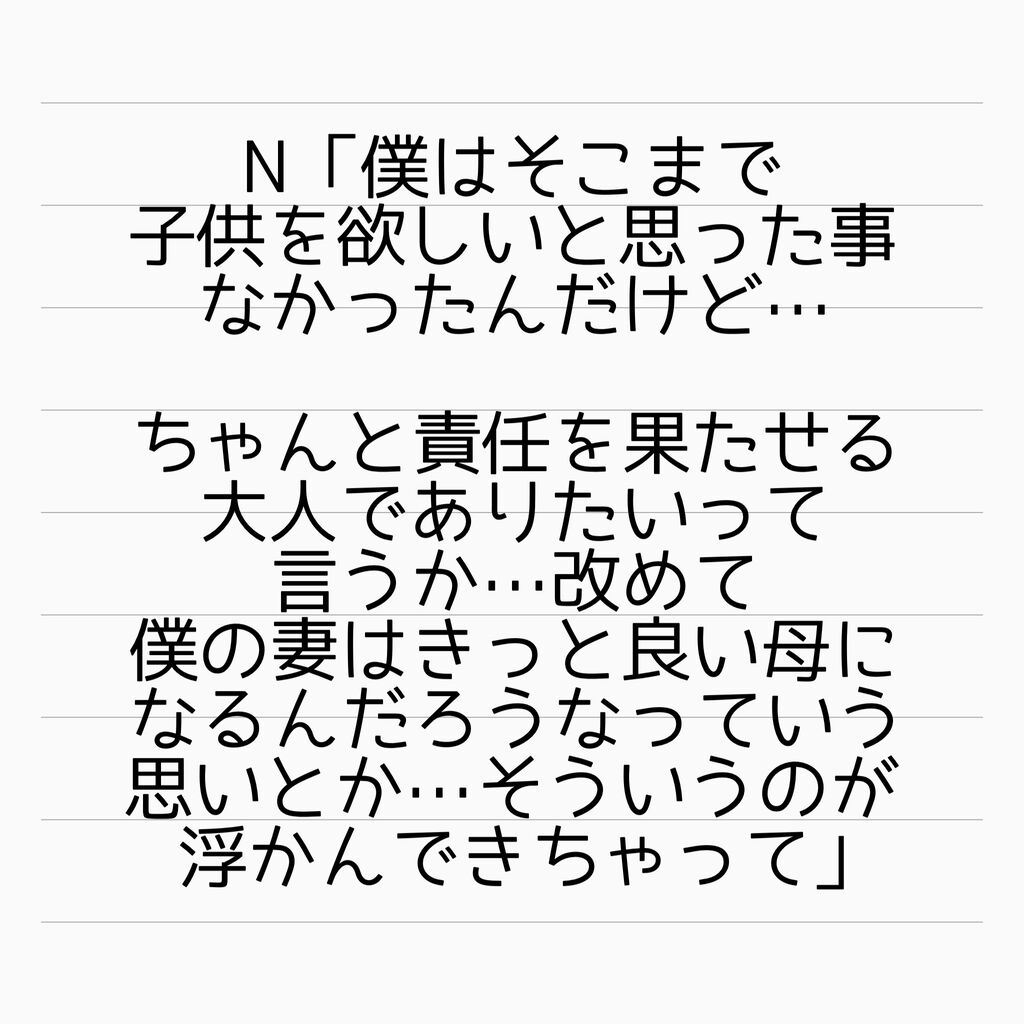 N「僕はそこまで
子供を欲しいと思った事
なかったんだけど…
ちゃんと責任を果たせる
大人でありたいって
言うか…改めて
僕の妻はきっと良い母に
なるんだろうなっていう
思いとか…そういうのが
浮かんできちゃって」